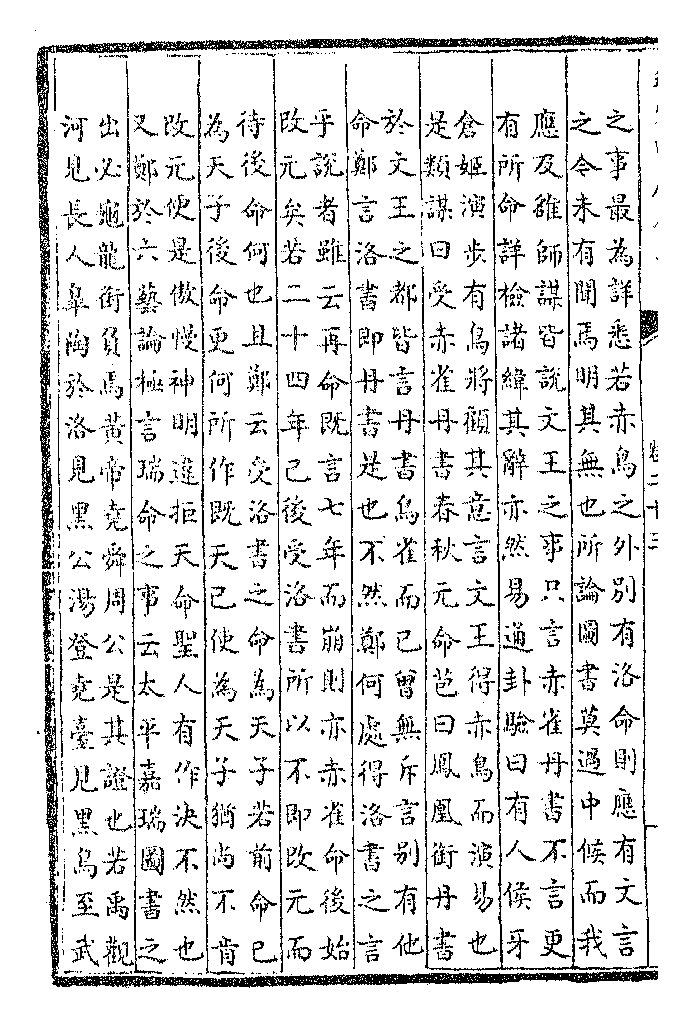 之事最為詳悉若赤鳥之外別有洛命則應有文言
之令未有聞焉明其無也所論圖書莫過中候而我
應及雒師謀皆説文王之事只言赤雀丹書不言更
有所命詳檢諸緯其辭亦然易通卦驗曰有人候牙
倉姬演步有鳥將顧其意言文王得赤鳥而演易也
是類謀曰受赤雀丹書春秋元命苞曰鳳凰銜丹書
於文王之都皆言丹書鳥雀而已曾無斥言別有他
命鄭言洛書即丹書是也不然鄭何處得洛書之言
乎説者雖云再命既言七年而崩則亦赤雀命後始
改元矣若二十四年已後受洛書所以不即改元而
待後命何也且鄭云受洛書之命為天子若前命已
為天子後命更何所作既天已使為天子猶尚不肯
改元便是傲慢神明違拒天命聖人有作決不然也
又鄭於六藝論極言瑞命之事云太平嘉瑞圖書之
出必龜龍銜負焉黃帝堯舜周公是其證也若禹觀
河見長人皐陶於洛見黑公湯登堯臺見黑烏至武
卷二十三